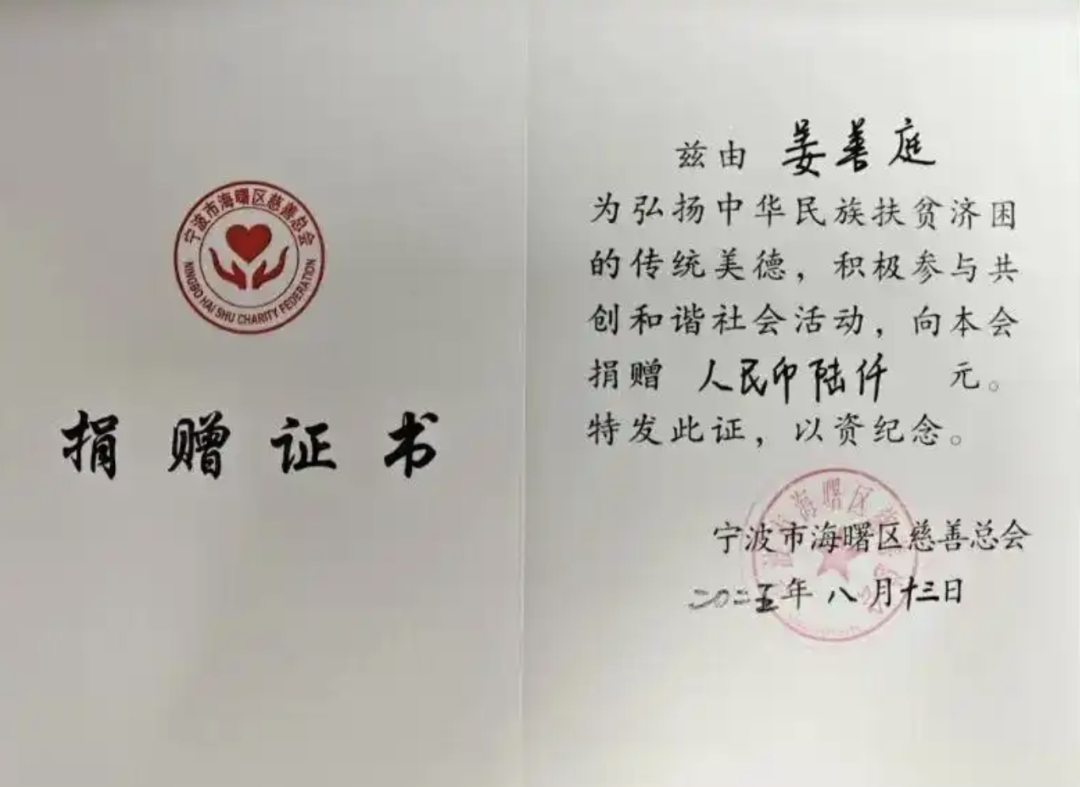 宁波市海曙区慈善总会
NINGBO HAI SHU CHARITY FEDERATION
捐赠证书
兹由 姜善庭
为弘扬中华民族扶贫济困
的传统美德，积极参与共
创和谐社会活动，向本会
捐赠 人民币陆仟 元。
特发此证，以资纪念。
宁波市海曙区慈善总会
二〇二五年八月十三日
海曙区